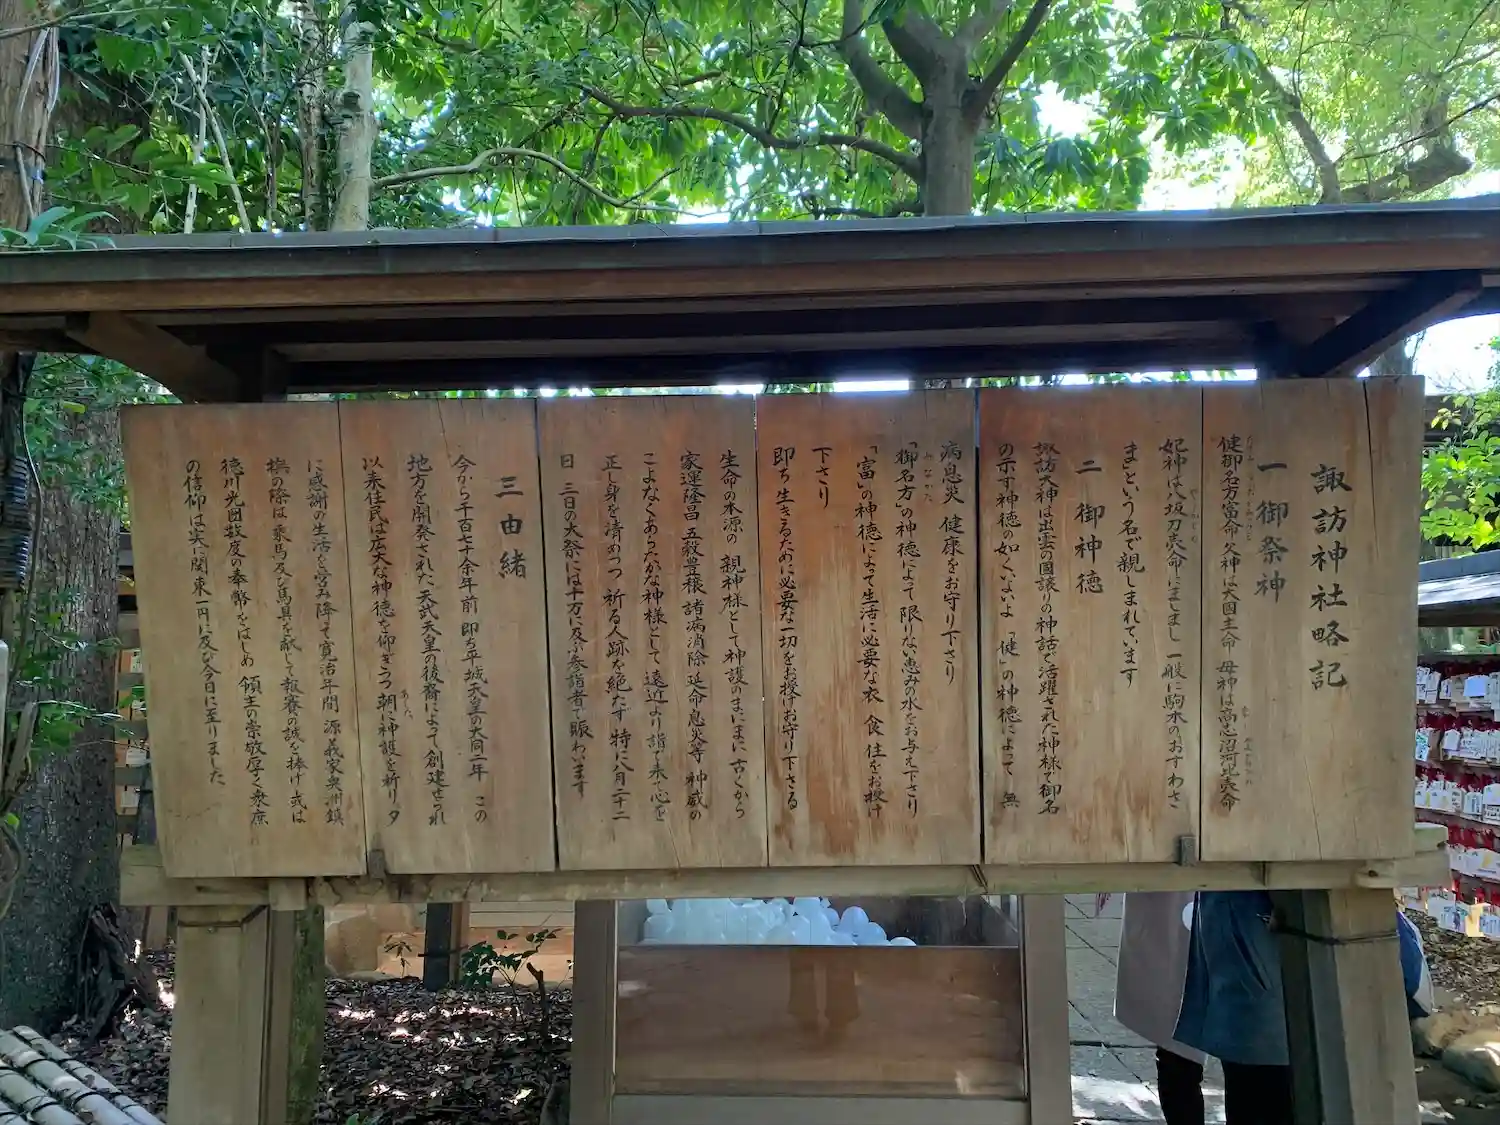 諏訪神社略記
一 御祭神
健御名方富命 父神は大国主命 母神は高志沼河比売命
妃神は八坂刀売命にましまし 一般に駒木のおすわさ
まという名で親しまれています
二 御神徳
諏訪大神は出雲の国譲りの神話で活躍された神様で御名
の示す神徳の如くいよいよ「健」の神徳によって 無
病息災 健康をお守り下さり
「御名方」の神徳によって限りない恵みの水をお与え下さり
「富」の神徳によって生活に必要な衣 食 住をお授け
下さり
即ち生きるために必要な一切をお授けお守り下さる
生命の本源の 親神様として神護のまにまに古くから
家運隆昌 五穀豊穣 諸病消除 延命息災等 神威の
こよなくあらたかな神様として遠近より詣で来て心を
正し身を清めつつ 祈る人跡を絶たず 特に八月二十二
日 三日の大祭には千万に及ぶ参詣者で賑わいます
三 由緒
今から千百七十余年前 即ち平城天皇の大同二年 この
地方を開発された 天武天皇の後裔によって創建せられ
以来住民は広大な神徳を仰ぎつつ 朝に神護を祈り夕
に感謝の生活を営み降って寛治年間 源義家奥州鎮
撫の際は 乗馬及び馬具を献じて報賽の誠を捧げ 或は
徳川光圀数度の奉幣をはじめ 領主の崇敬厚く衆庶
の信仰は実に関東一円に及び今日に至りました